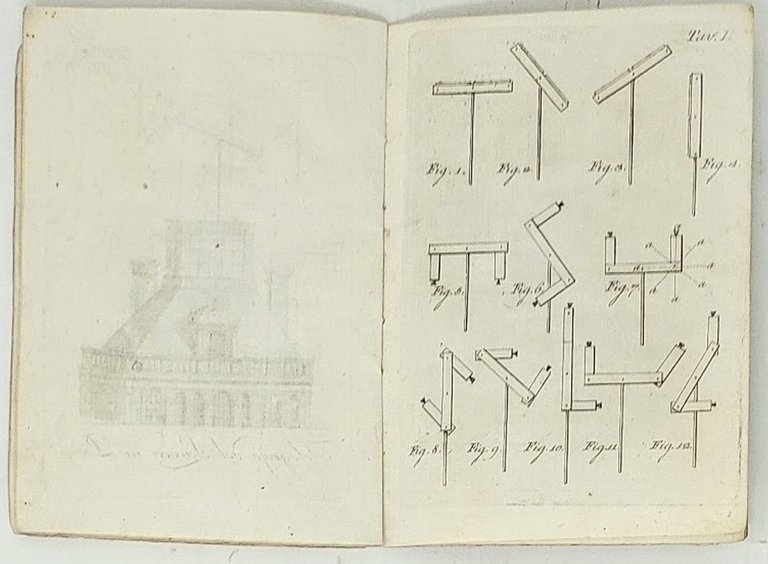 Tav. I
Fig. 1.
Fig. 2.
Fig. 3.
Fig. 4.
Fig. 5.
Fig. 6.
Fig. 7.
a
a
a
a
a
a
a
Fig. 8.
Fig. 9.
Fig. 10.
Fig. 11.
Fig. 12.